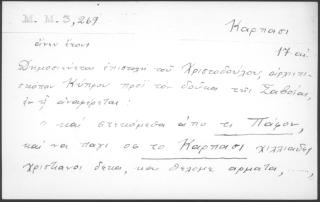 Μ. Μ. 3, 267
Καρπασι
άνευ έτου
17 αι.
Δημοσιεύεται επιστολή του Χριστοδούλου, αρχιεπι-
σκόπου Κύπρου προς τον δούκα της Σαβοΐας,
εν ή αναφέρεται:
" και στεκόμεθα απο τι Πάφον,
και να πάγι σο το Καρπασι χιλλιαδες
χριστιανοι δεκα, και θέλομε αρματα, ...,